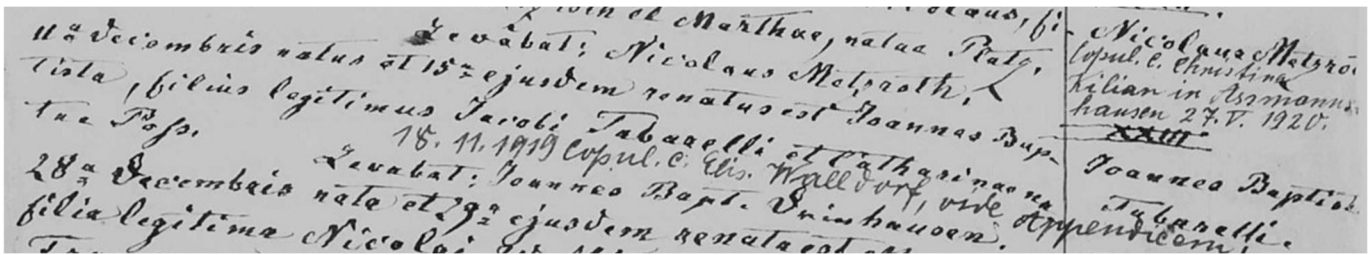 et Marthae, natae Platz.
Levabat: Nicolaus Metzroth.
11a Decembris natus et 15a ejusdem renatus est Joannes Bap-
tista, filius legitimus Jacobi Tabarelli et Catharinae na-
tae Pass.
18. 11. 1919 Copul. c. Elis. Walldorf, vide Appendicem,
Levabat: Joannes Bapt. Drinhausen.
28a Decembris nata et 29a ejusdem renata est
filia legitima Nicolai
Nicolaus Metzro
Copul. c. Christina
Kilian in Assmanns-
hausen 27. V. 1920.
XXIII
Joannes Baptist
Tabarelli.